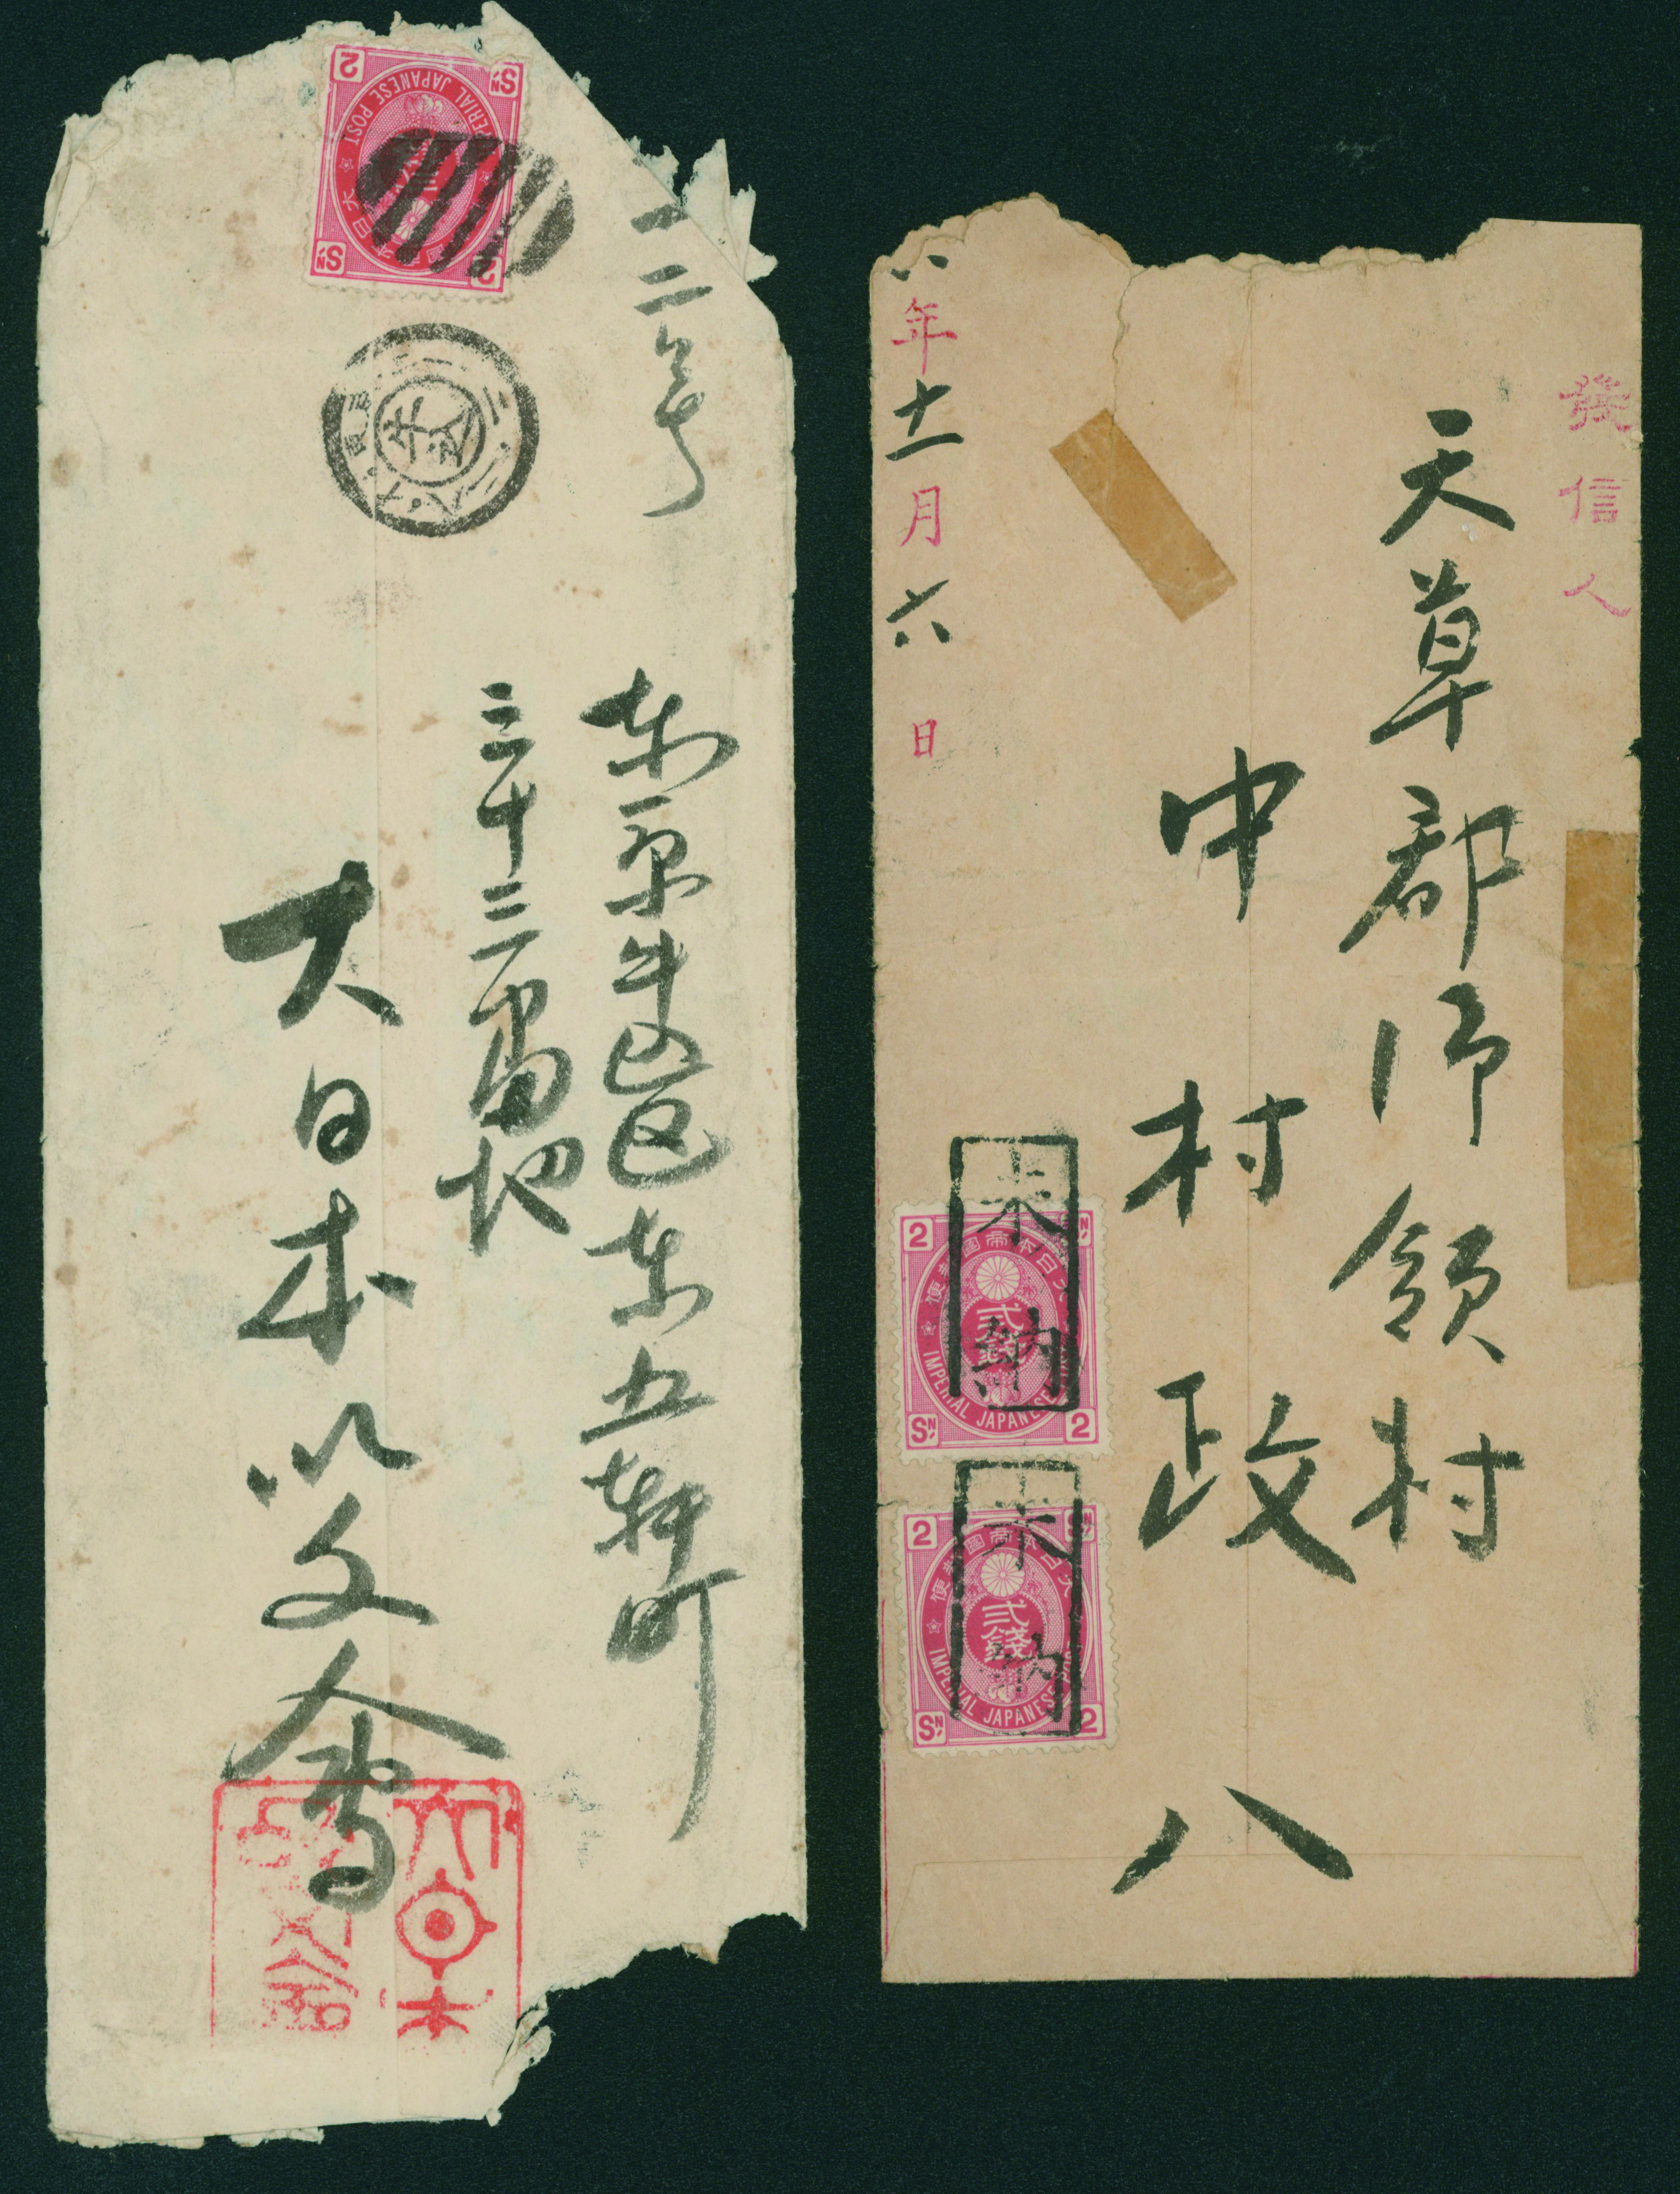 2
SN
IMPERIAL JAPANESE POST
SN
2
二号
東京牛込区東五軒町
三十三番地
大日本以文会
発信人
天草郡御領村
中村政八
八年十一月六日
未納
2
大日本帝国郵便
貳錢
IMPERIAL JAPANESE
SN
2
未納
2
大日本帝国郵便
貳錢
IMPERIAL JAPANESE POST
SN
2